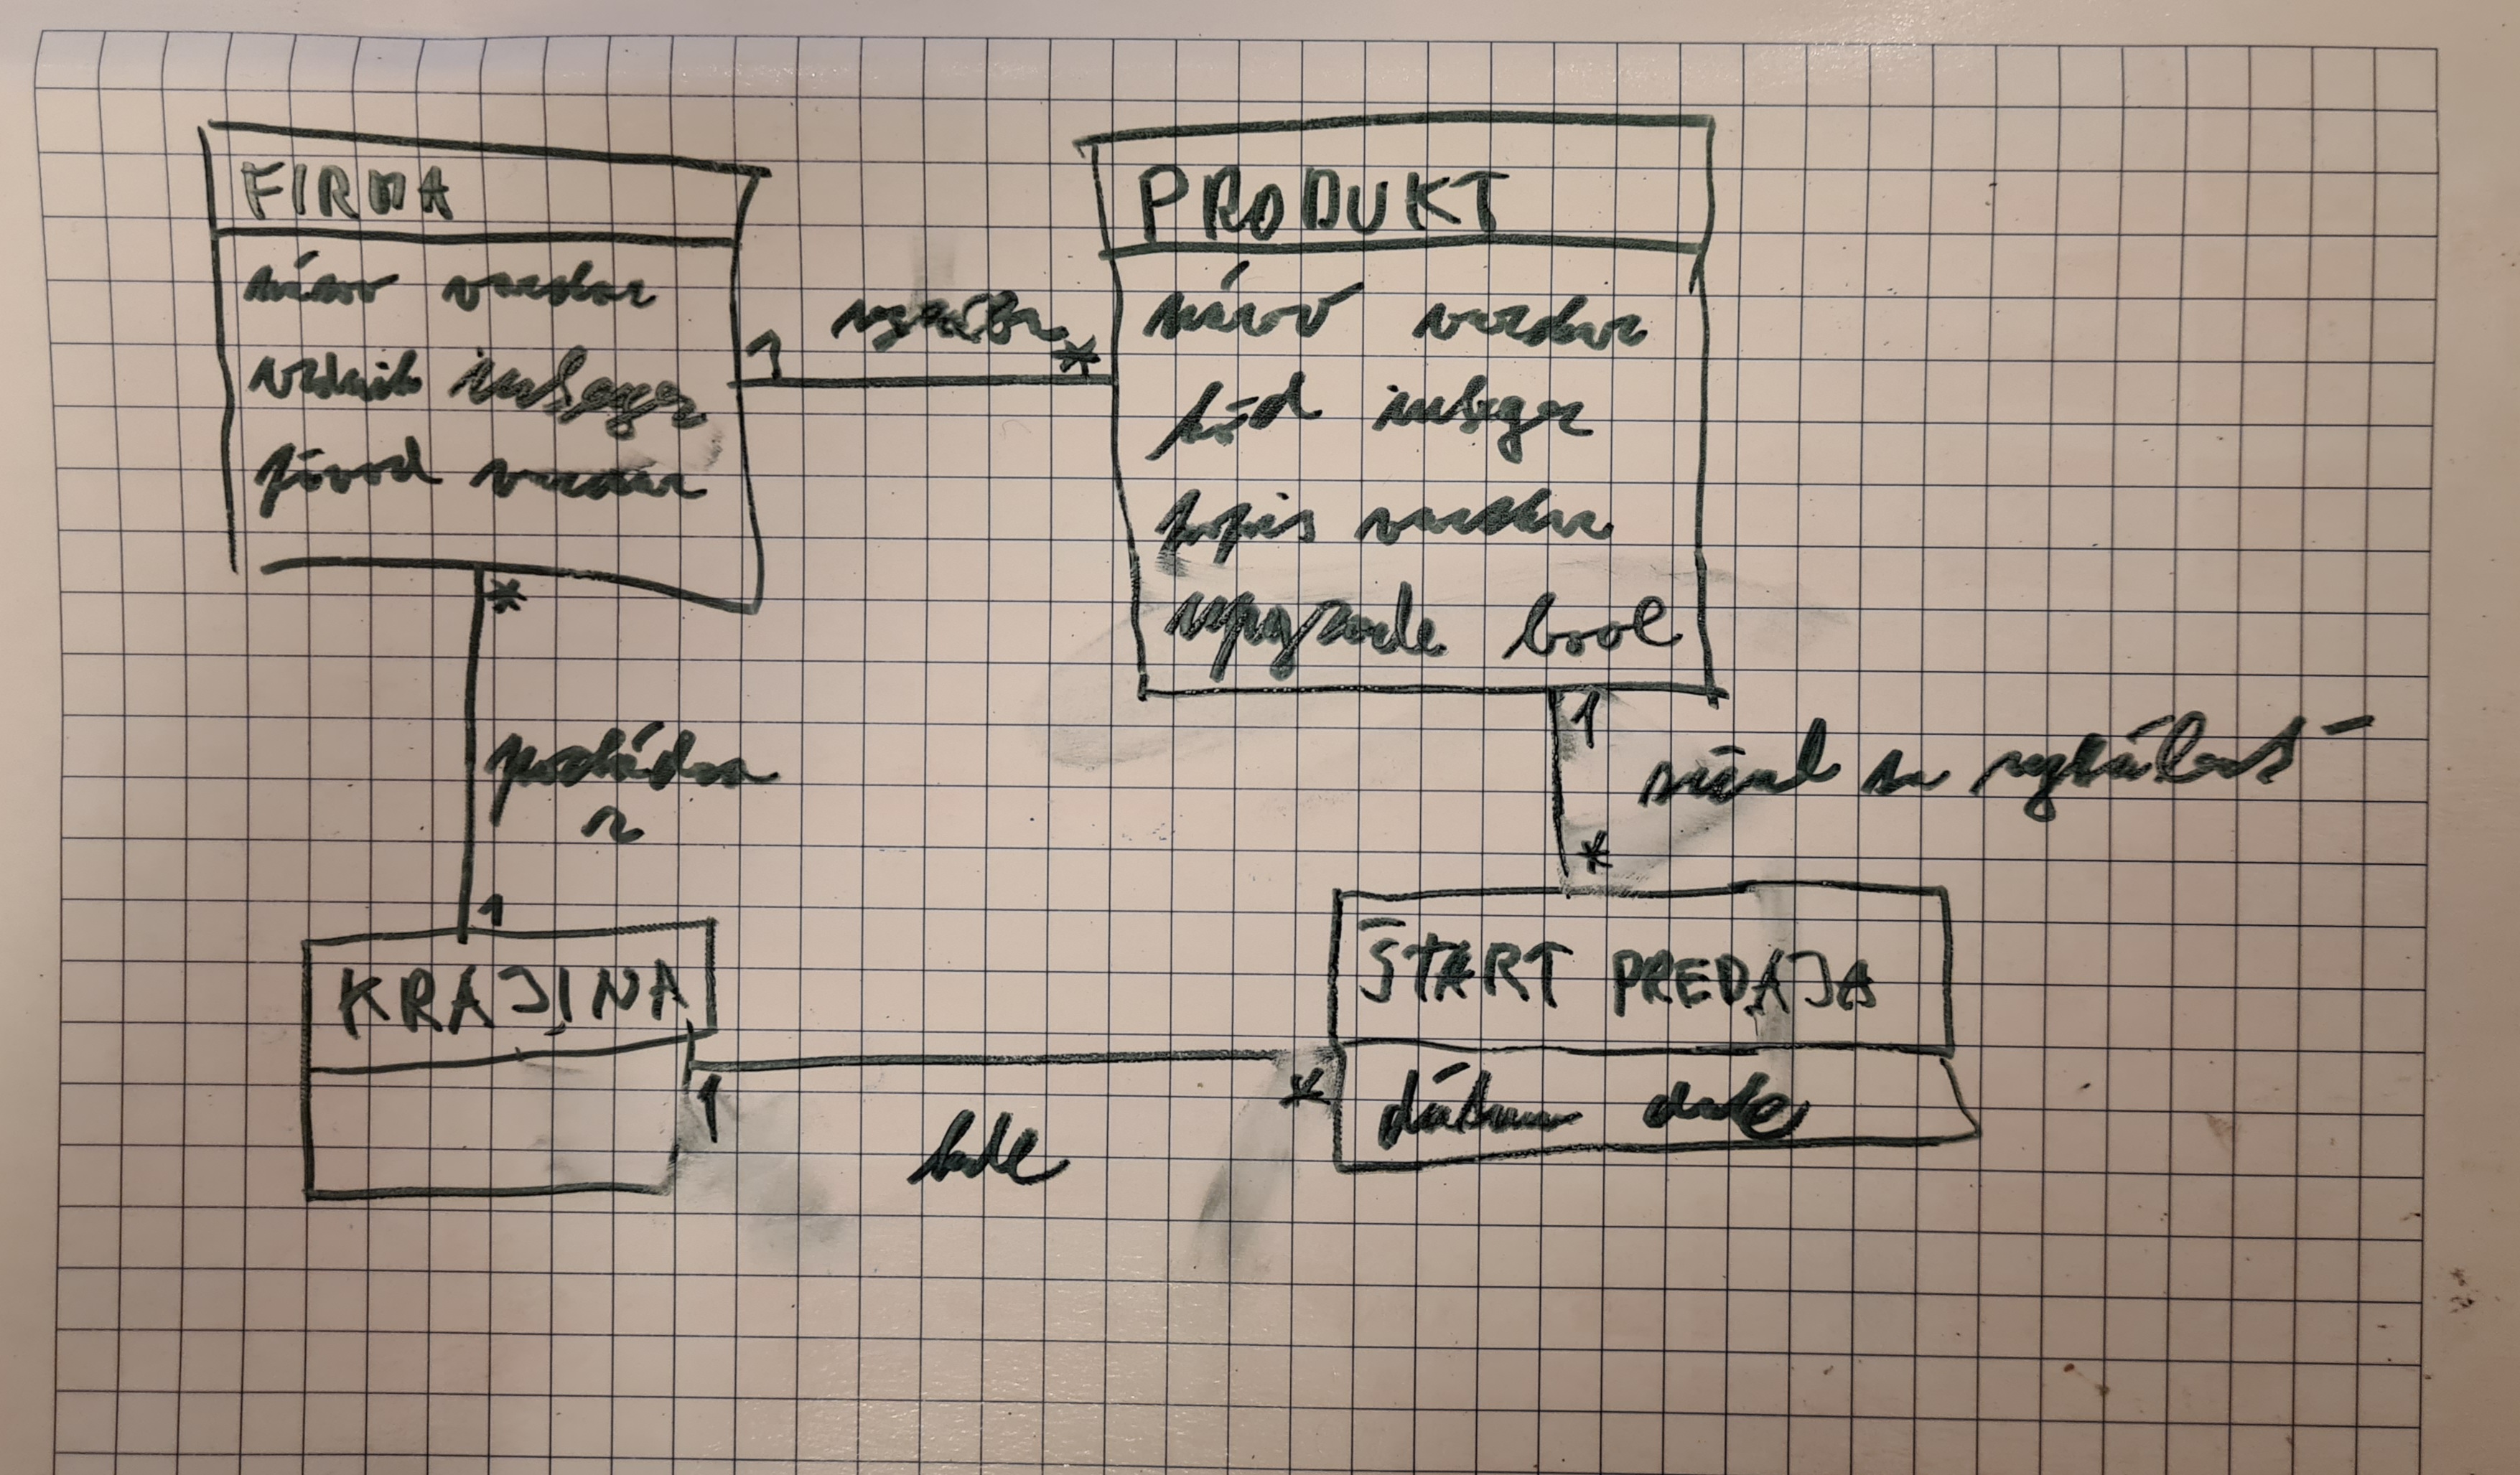 FIRMA
názov varchar
vznik integer
pôvod varchar
1 vyrába *
PRODUKT
názov varchar
kód integer
popis varchar
upgrade bool
*
pochádza
z
1
1
začal sa
*
KRAJINA
1
*
kde
START PREDAJA
dátum date